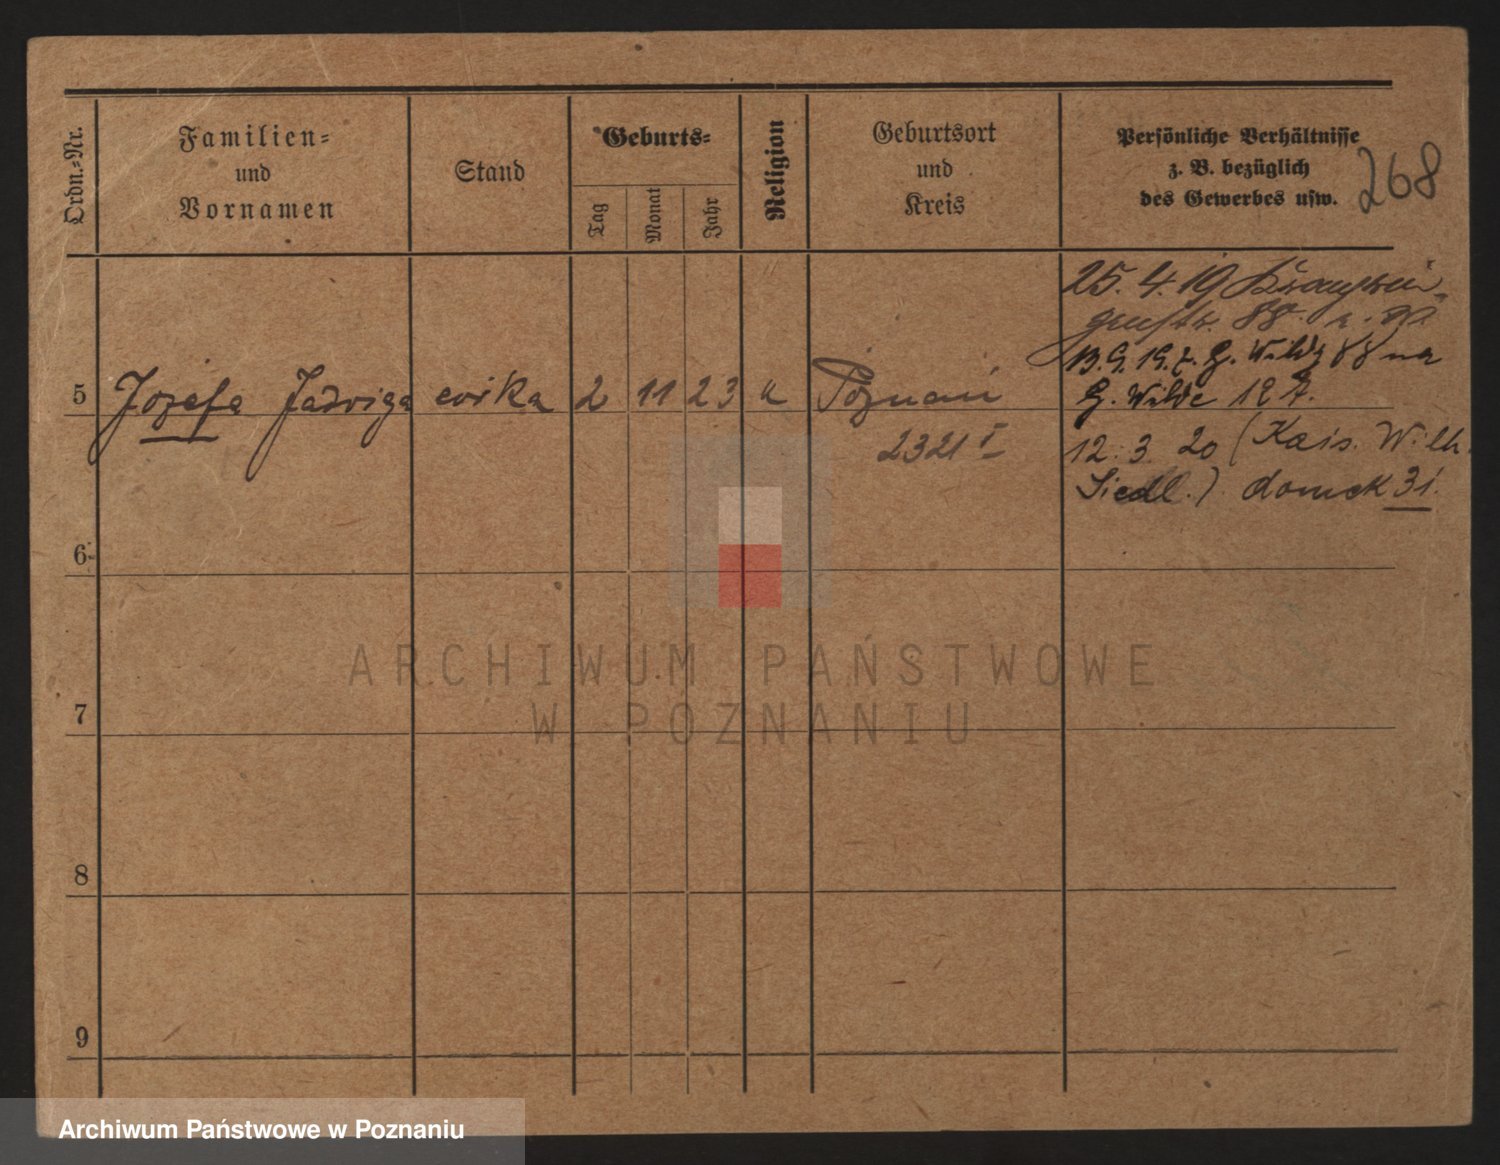 Ordn.-Nr.
Familien-
und
Vornamen
Stand
Geburts-
Tag
Monat
Jahr
Religion
Geburtsort
und
Kreis
Persönliche Verhältnisse
z. B. bezüglich
des Gewerbes usw.
268
25. 4. 19
88
13.9.19 z. G. Wildy 88 na
5 Józefa Jadwiga córka 2 11 23 k Poznań G. Wilde 12 A.
2321 I 12. 3. 20 (Kais. Wilh.
Siedl.). domek 31.
6
7
8
9
ARCHIWUM PAŃSTWOWE
W POZNANIU
Archiwum Państwowe w Poznaniu